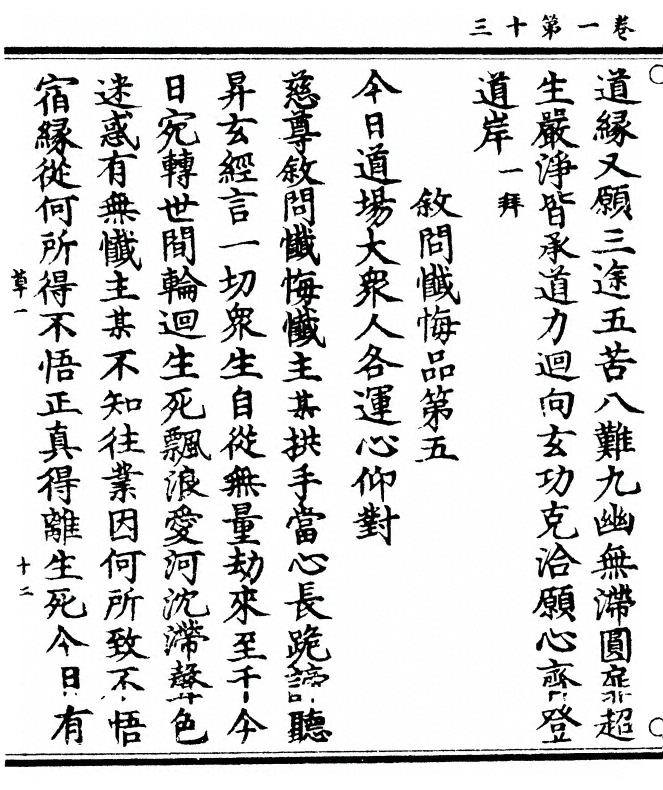 卷一第十三
道緣又願三途五苦八難九幽無滯圓乘超
生嚴淨皆承道力迴向玄功克洽願心齊登
道岸 一拜
敘問懺悔品第五
今日道場大衆人各運心仰對
慈尊敘問懺悔懺主某拱手當心長跪諦聽
昇玄經言一切衆生自從無量劫來至于今
日宛轉世間輪迴生死飄浪愛河沈滯聲色
迷惑有無懺主某不知往業因何所致不悟
宿緣從何所得不悟正真得離生死今日有
草一
十二